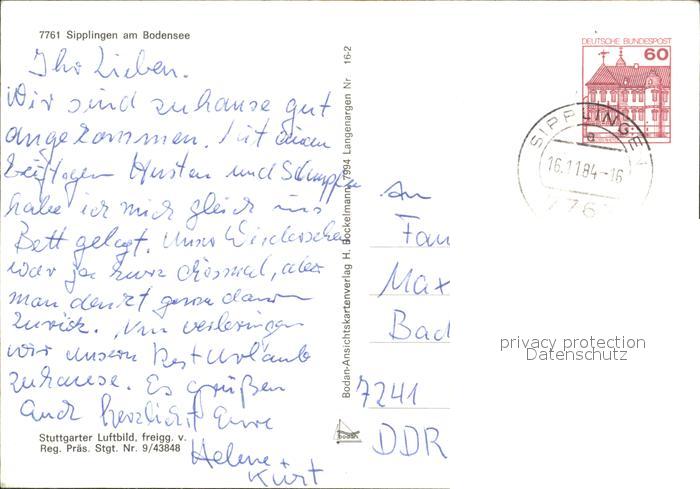 7761 Sipplingen am Bodensee
Ihr Lieben.
Wir sind zuhause gut
angekommen. Mit einem
heftigen Husten und Schnupfen
habe ich mich gleich ins
Bett gelegt. Unser Wiedersehen
war ja kurz diesmal, aber
man denkt gerne daran
zurück. Nun verbringen
wir unsern Resturlaub
zuhause. Es grüßen
Euch herzlichst Eure
Helene +
Kurt
Stuttgarter Luftbild, freigg. v.
Reg. Präs. Stgt. Nr. 9/43848
Bodan-Ansichtskartenverlag H. Bockelmann, 7994 Langenargen Nr 16-2
bodan
DEUTSCHE BUNDESPOST
60
SIPPLINGE
a
16.11.84-16
776
An
Fam
Max
Bad
7241
DDR
privacy protection
Datenschutz